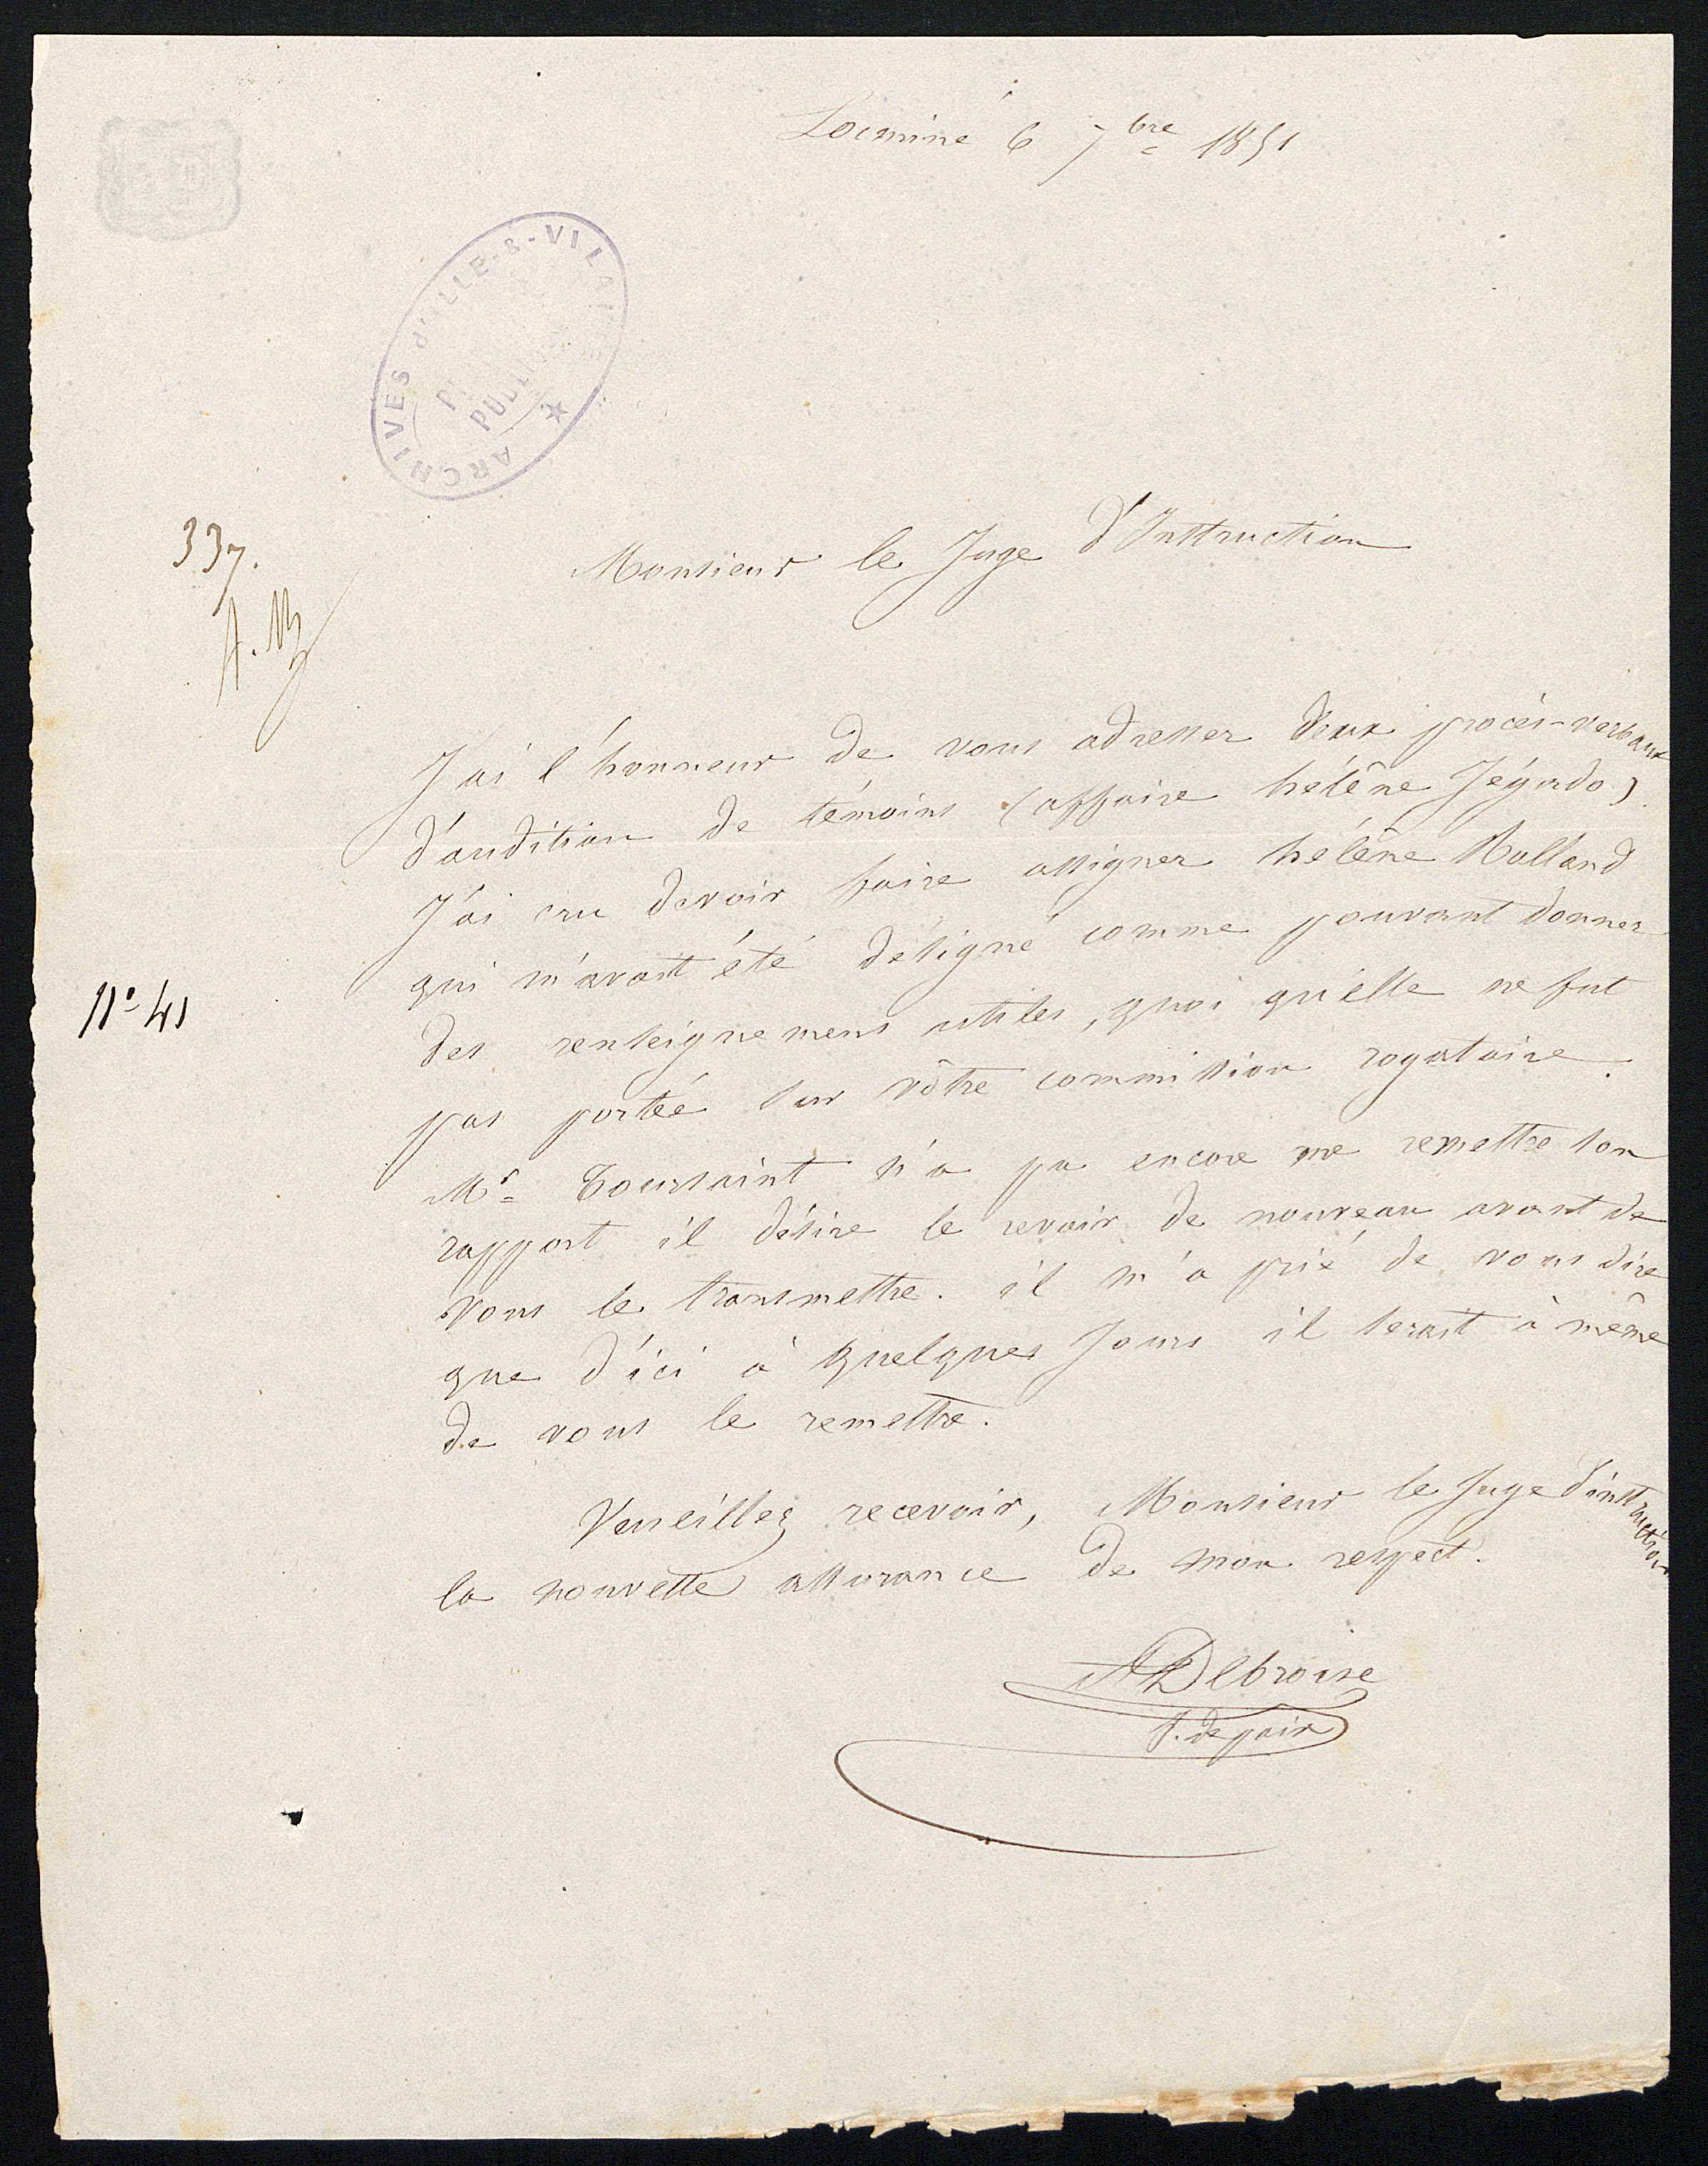 Locminé 6 7bre 1851
ARCHIVES d'ILLE-&-VILAINE
PUBLIQUE
337.
Monsieur le Juge d'Instruction
J'ai l'honneur de vous adresser deux procès-verbaux
d'audition de témoins (affaire hélène Jégado)
J'ai cru devoir faire assigner hélène Rolland
qui m'avait été désigné comme pouvant donner
N° 41
des renseignemens utiles, quoi qu'elle ne fut
pas portée sur vôtre commission rogatoire.
Mr Toursaint n'a pu encore me remettre son
rapport il désire le revoir de nouveau avant de
vous le transmettre. il m'a prié de vous dire
que d'ici à quelques Jours il serait à même
de vous le remettre.
Veuillez recevoir, Monsieur le Juge d'instruction
la nouvelle assurance de mon respect.
ADebroise
J. de paix